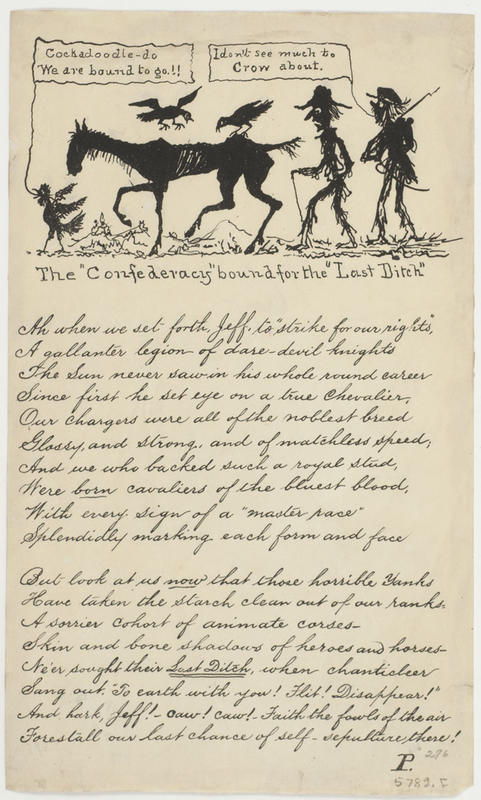 Cockadoodle-do
We are bound to go!!
I don't see much to
Crow about.
The "Confederacy" bound for the "Last Ditch"
Ah when we set forth, Jeff, to "strike for our rights",
A gallanter legion of dare-devil knights
The Sun never saw in his whole round career
Since first he set eye on a true Chevalier,
Our chargers were all of the noblest breed
Glossy, and strong, and of matchless speed;
And we who backed such a royal stud,
Were born cavaliers of the bluest blood,
With every sign of a "master race"
Splendidly marking each form and face
But look at us now that those horrible Yanks
Have taken the starch clean out of our ranks.
A sorrier cohort of animate corses—
Skin and bone shadows of heroes and horses—
Ne'er sought their Last Ditch, when chanticleer
Sang out, "To earth with you! Flit! Disappear!"
And hark, Jeff!- caw! caw!- Faith the fowls of the air
Forestall our last chance of self-sepulture, there!
P.
276
5789.F